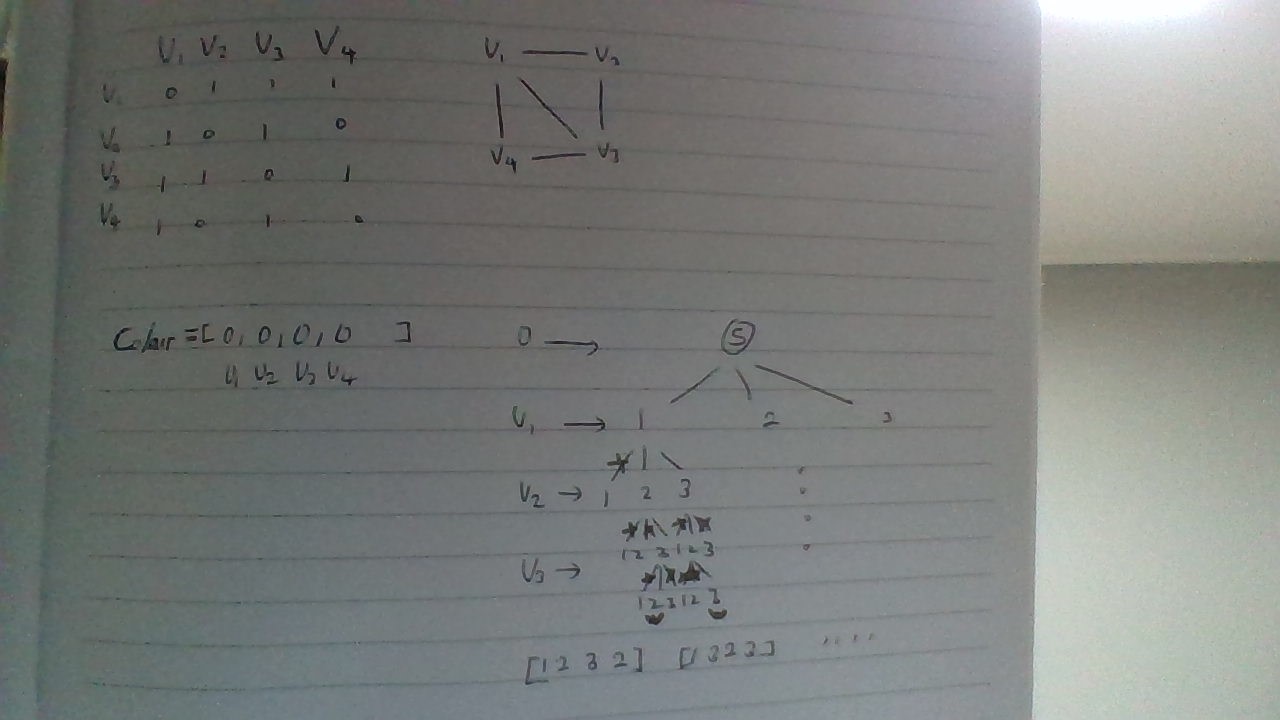 V₁ V₂ V₃ V₄
V₁ 0 1 1 1
V₂ 1 0 1 0
V₃ 1 1 0 1
V₄ 1 0 1 0
V₁ V₂
V₄ V₃
Colour = [ 0, 0, 0, 0 ]
V₁ V₂ V₃ V₄
0 → S
V₁ → 1 2 3
V₂ → 1 2 3
1 2 3 1 2 3
V₃ →
1 2 3 1 2 3
[1 2 3 2] [1 3 2 3] ....